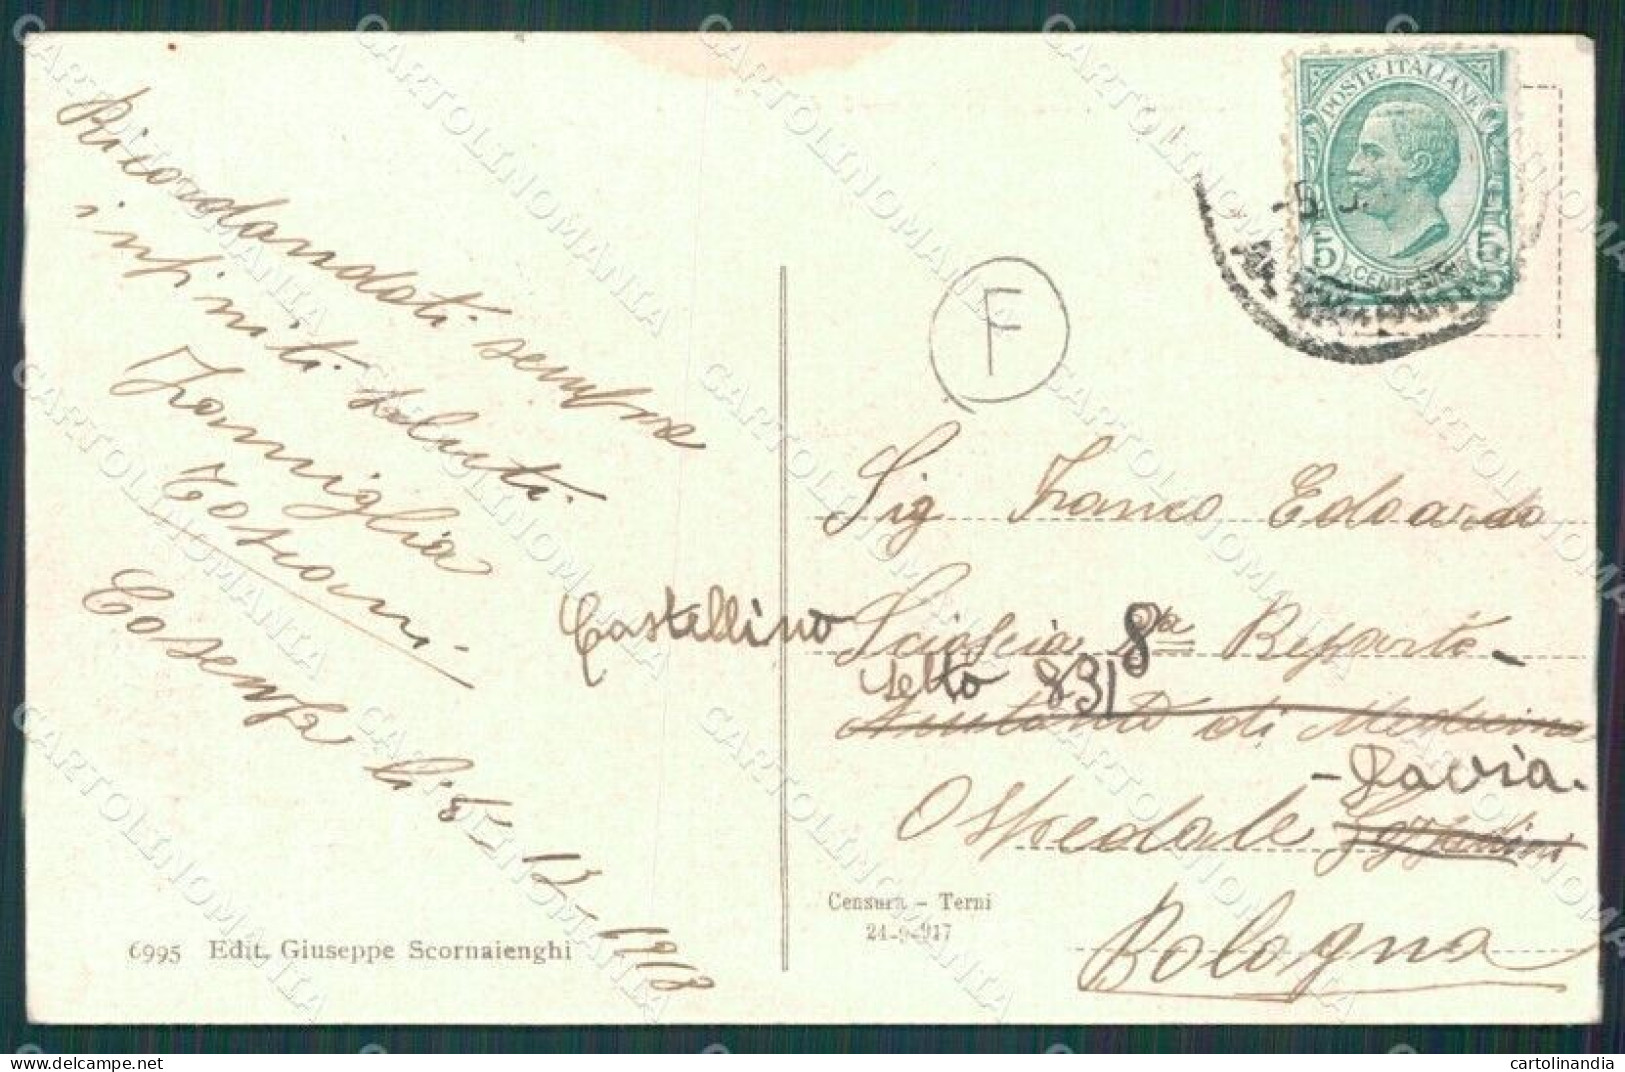 Ricordandoti sempre
infiniti saluti.
Famiglia
Toscani
Cosenza li 8-12-1918
6995 Edit. Giuseppe Scornaienghi
Censura - Terni
24-9-917
F
POSTE ITALIANE
5 CENTESIMI 5
Sig Franco Edoardo
Castellino
8va Reparto -
letto 831
di Medicina
- Pavia -
Ospedale
Bologna
CARTOLINOMANIA
cartolinandia